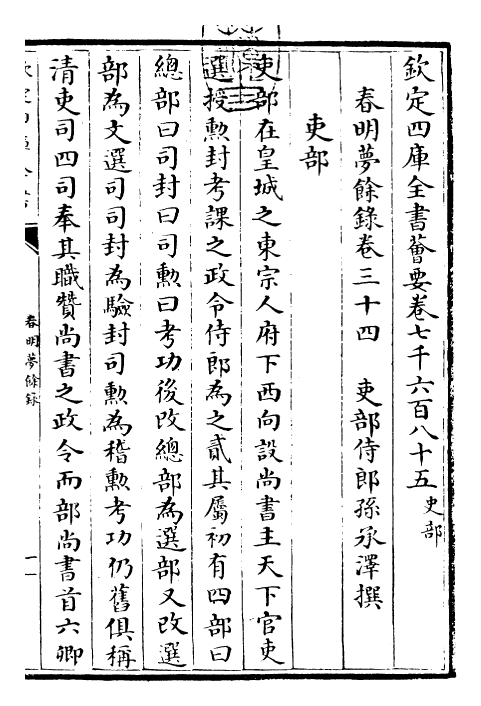 欽定四庫全書薈要卷七千六百八十五史部
春明夢餘錄卷三十四　吏部侍郎孫承澤撰
吏部
吏部在皇城之東宗人府下西向設尚書主天下官吏
選授勲封考課之政令侍郎為之貳其屬初有四部曰
總部曰司封曰司勲曰考功後改總部為選部又改選
部為文選司司封為驗封司勲為稽勲考功仍舊俱稱
清吏司四司奉其職贊尚書之政令而部尚書首六卿
春明夢餘録
一